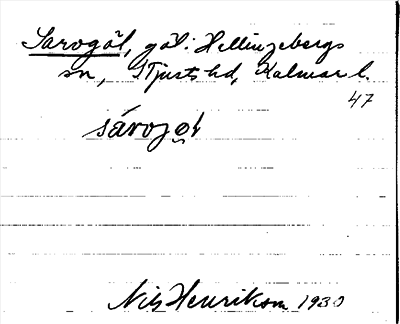 Sarvgöl, göl: Hellingebergs
sn, Tjusts hd, Kalmar l.
47
sárvojøl
Nils Henrikson 1930